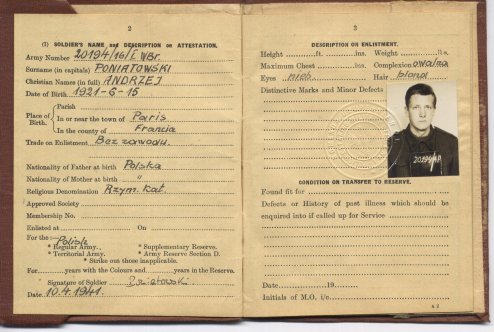 2
(1) SOLDIER'S NAME and DESCRIPTION on ATTESTATION.
Army Number 20194/16/I WBr.
Surname (in capitals) PONIATOWSKI
Christian Names (in full) ANDRZEJ
Date of Birth 1921-6-15
Place of Birth.
Parish
In or near the town of Paris
In the county of Francia
Trade on Enlistment Bez zawodu.
Nationality of Father at birth Polska
Nationality of Mother at birth "
Religious Denomination Rzym. kat.
Approved Society
Membership No.
Enlisted at On
For the:- Polish
* Regular Army. * Supplementary Reserve.
* Territorial Army. * Army Reserve Section D.
* Strike out those inapplicable.
For years with the Colours and years in the Reserve.
Signature of Soldier
Date 10.4.1941.
DESCRIPTION ON ENLISTMENT.
Height ft. ins. Weight lbs.
Maximum Chest ins. Complexion owalna
Eyes nieb. Hair blond
Distinctive Marks and Minor Defects
CONDITION ON TRANSFER TO RESERVE.
Found fit for
Defects or History of past illness which should be
enquired into if called up for Service
Date 19
Initials of M.O. i/c